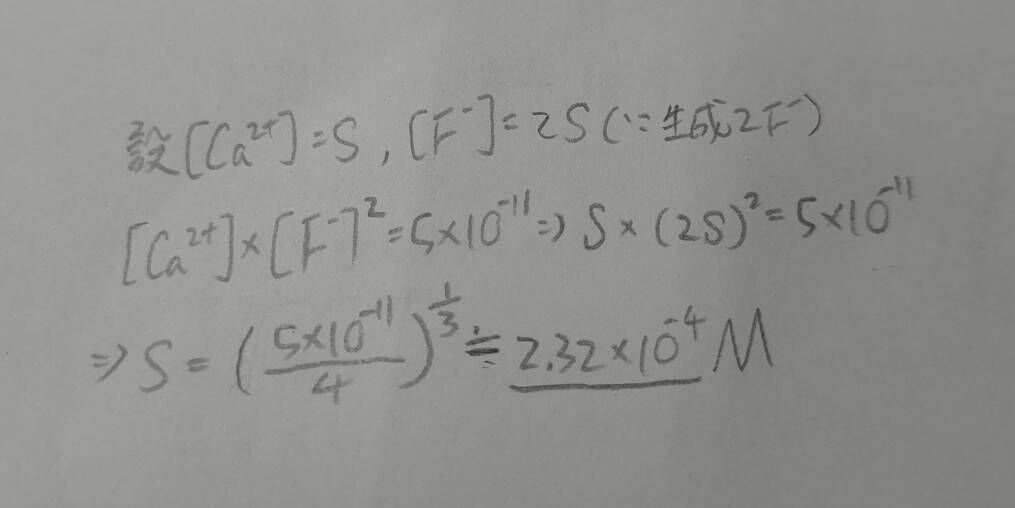 設[Ca²⁺]=S, [F⁻]=2S(∵生成2F⁻)
[Ca²⁺]×[F⁻]²=5×10⁻¹¹⇒S×(2S)²=5×10⁻¹¹
⇒S=(5×10⁻¹¹/4)^(1/3)≒2.32×10⁻⁴M